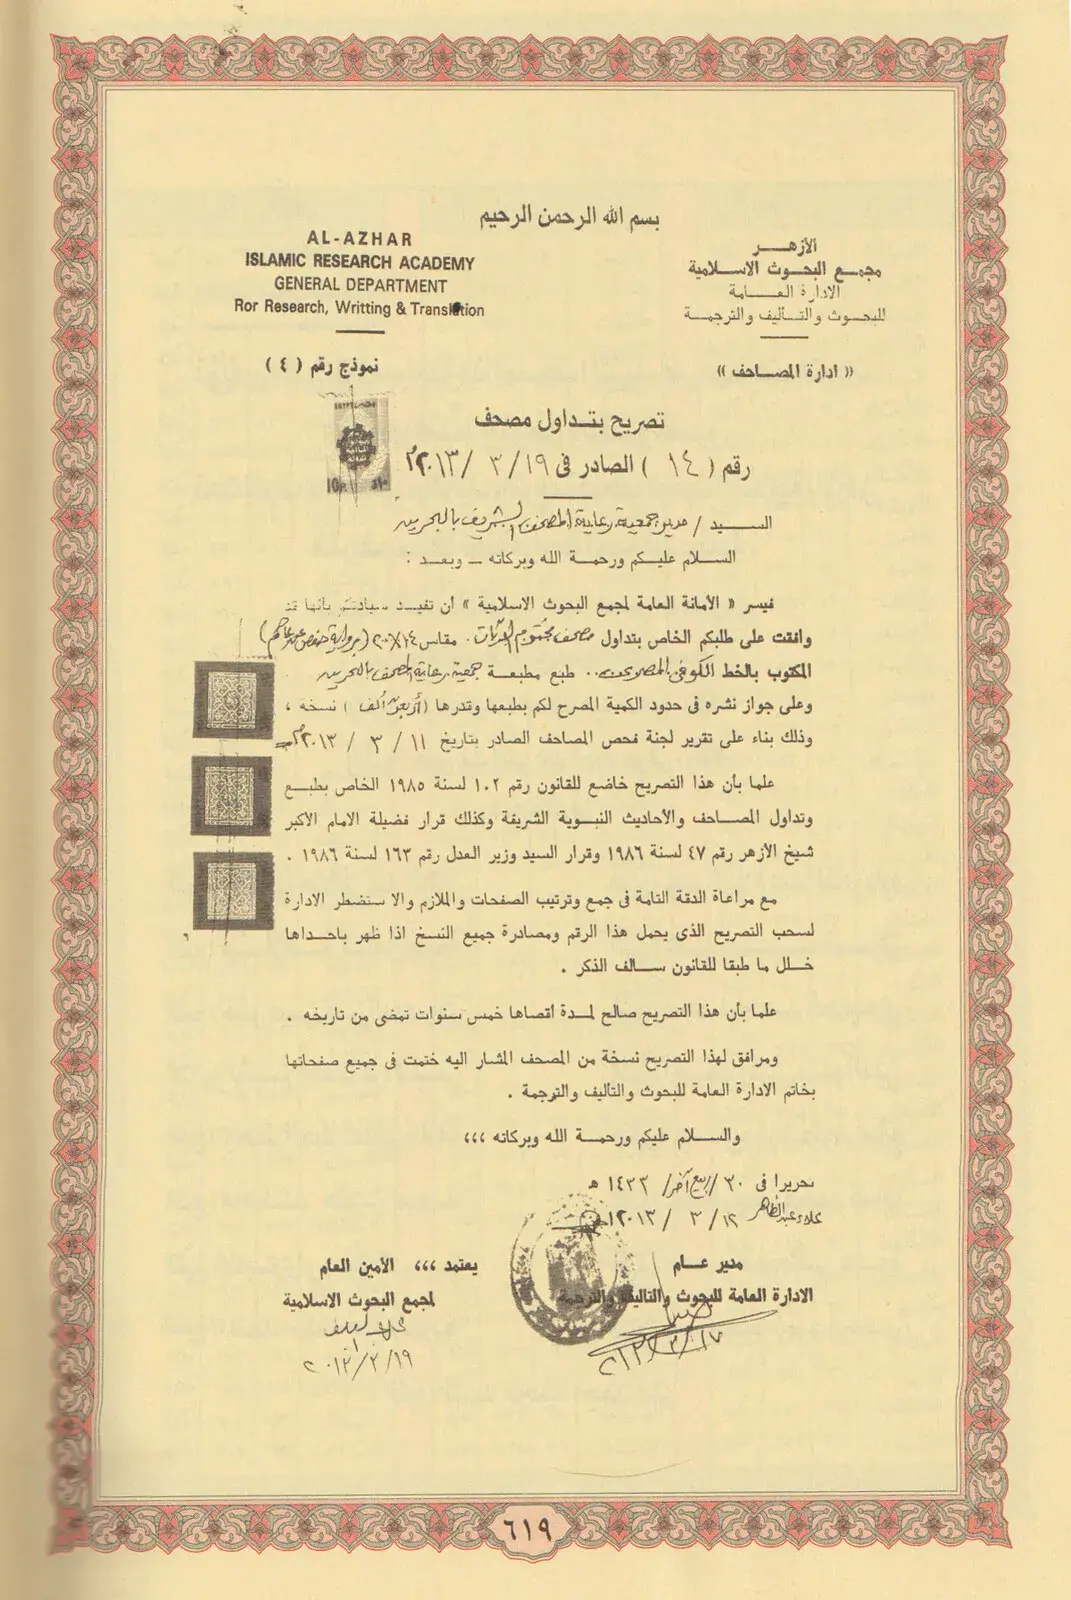 بسم الله الرحمن الرحيم
الأزهـــر
مجمـع البحـوث الاسـلامية
الادارة العـــامة
للبحـوث والتـأليف والترجمـة
AL-AZHAR
ISLAMIC RESEARCH ACADEMY
GENERAL DEPARTMENT
Ror Research, Writting & Translation
« ادارة المصـاحف »
نموذج رقم ( ٤ )
تصريح بتـداول مصحف
رقم ( ١٤ ) الصادر فى ١٩ / ٣ / ٢٠١٣م
الســيد / مدير جمعية رعاية المصحف الشريف بالبحرين
السـلام عليكم ورحمـة الله وبركاته ــ وبعـد :
فيسر « الأمانة العامة لمجمع البحوث الاسلامية » ان تفيـد سيادتكم بأنها قد
وافقت على طلبكم الخاص بتداول مصحف مقاس ١٤×٢٠ (برواية حفص عن عاصم)
المكتوب بالخط الكوفى طبع مطبعـة جمعية رعاية المصحف بالبحرين
وعلى جواز نشره فى حدود الكمية المصرح لكم بطبعها وقدرها ( أربعين ألف ) نسخه ،
وذلك بناء على تقرير لجنة فحص المصاحف الصادر بتاريخ ١١ / ٣ / ٢٠١٣م
علما بأن هذا التصريح خاضع للقانون رقم ١٠٢ لسنة ١٩٨٥ الخاص بطبـع
وتداول المصـاحف والأحاديث النبـوية الشريفة وكذلك قرار فضيلة الامام الاكبر
شيخ الأزهر رقم ٤٧ لسنة ١٩٨٦ وقرار السيد وزير العدل رقم ١٦٣ لسنة ١٩٨٦ .
مع مراعاة الدقة التامة فى جمع وترتيب الصفحات والملازم والا ستضطر الادارة
لسحب التصريح الذى يحمل هذا الرقم ومصادرة جميع النسخ اذا ظهر باحـداها
خـلل ما طبقا للقانون سـالف الذكر .
علما بأن هذا التصريح صالح لمـدة أقصاها خمس سنوات تمضى من تاريخه .
ومرافق لهذا التصريح نسخة من المصحف المشار اليه ختمت فى جميع صفحاتها
بخاتم الادارة العامة للبحوث والتأليف والترجمة .
والسـلام عليكم ورحمـة الله وبركاته ،،،
تحريرا فى ٣٠ / ربيع آخر / ١٤٣٣ هـ
علاء عبد الظاهر ١٢ / ٣ / ٢٠١٣م
مدير عـام
الادارة العامة للبحوث والتأليف والترجمة
٢٠١٣/٣/١٧
يعتمد ،،، الأمين العام
لمجمع البحوث الاسلامية
٢٠١٣/٣/١٩
٦١٩